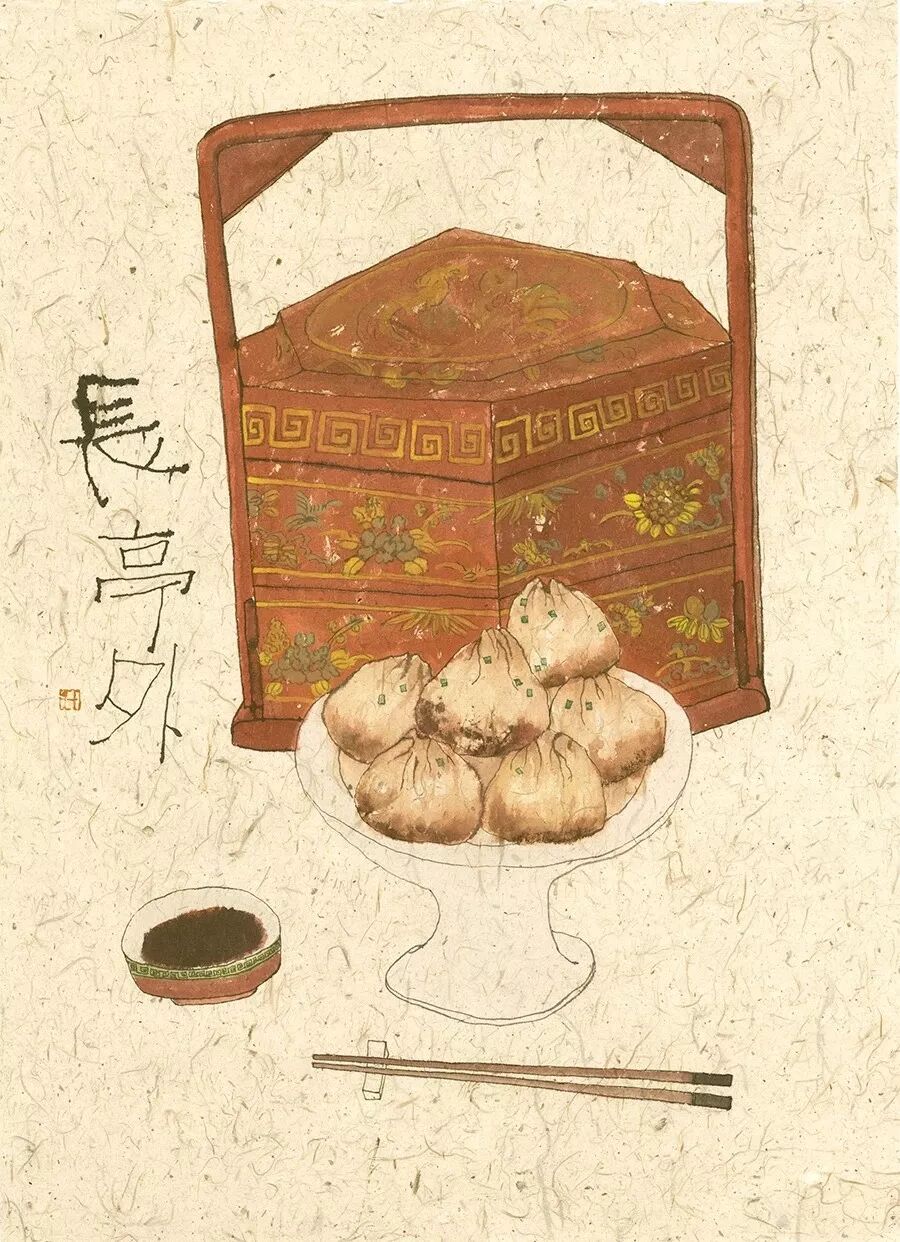 長亭外